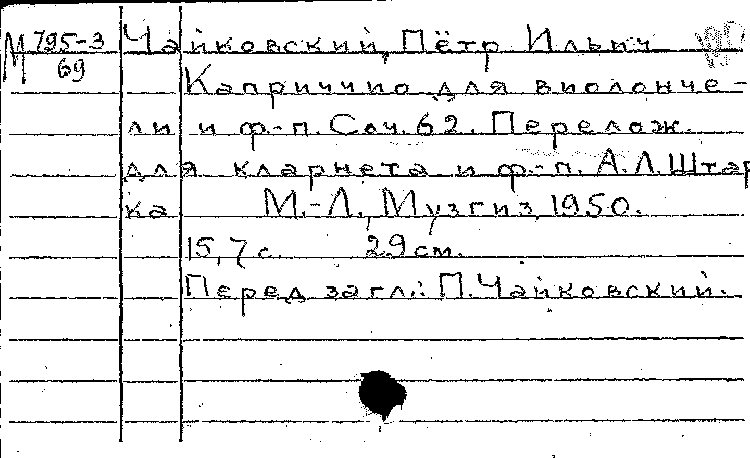 М 795-3
69
Чайковский, Пётр Ильич
Каприччио для виолонче-
ли и ф.-п. Соч. 62. Перелож.
для кларнета и ф.-п. А.Л. Штар
ка М.-Л., Музгиз, 1950.
15, 7 с. 29 см.
Перед загл.: П. Чайковский.